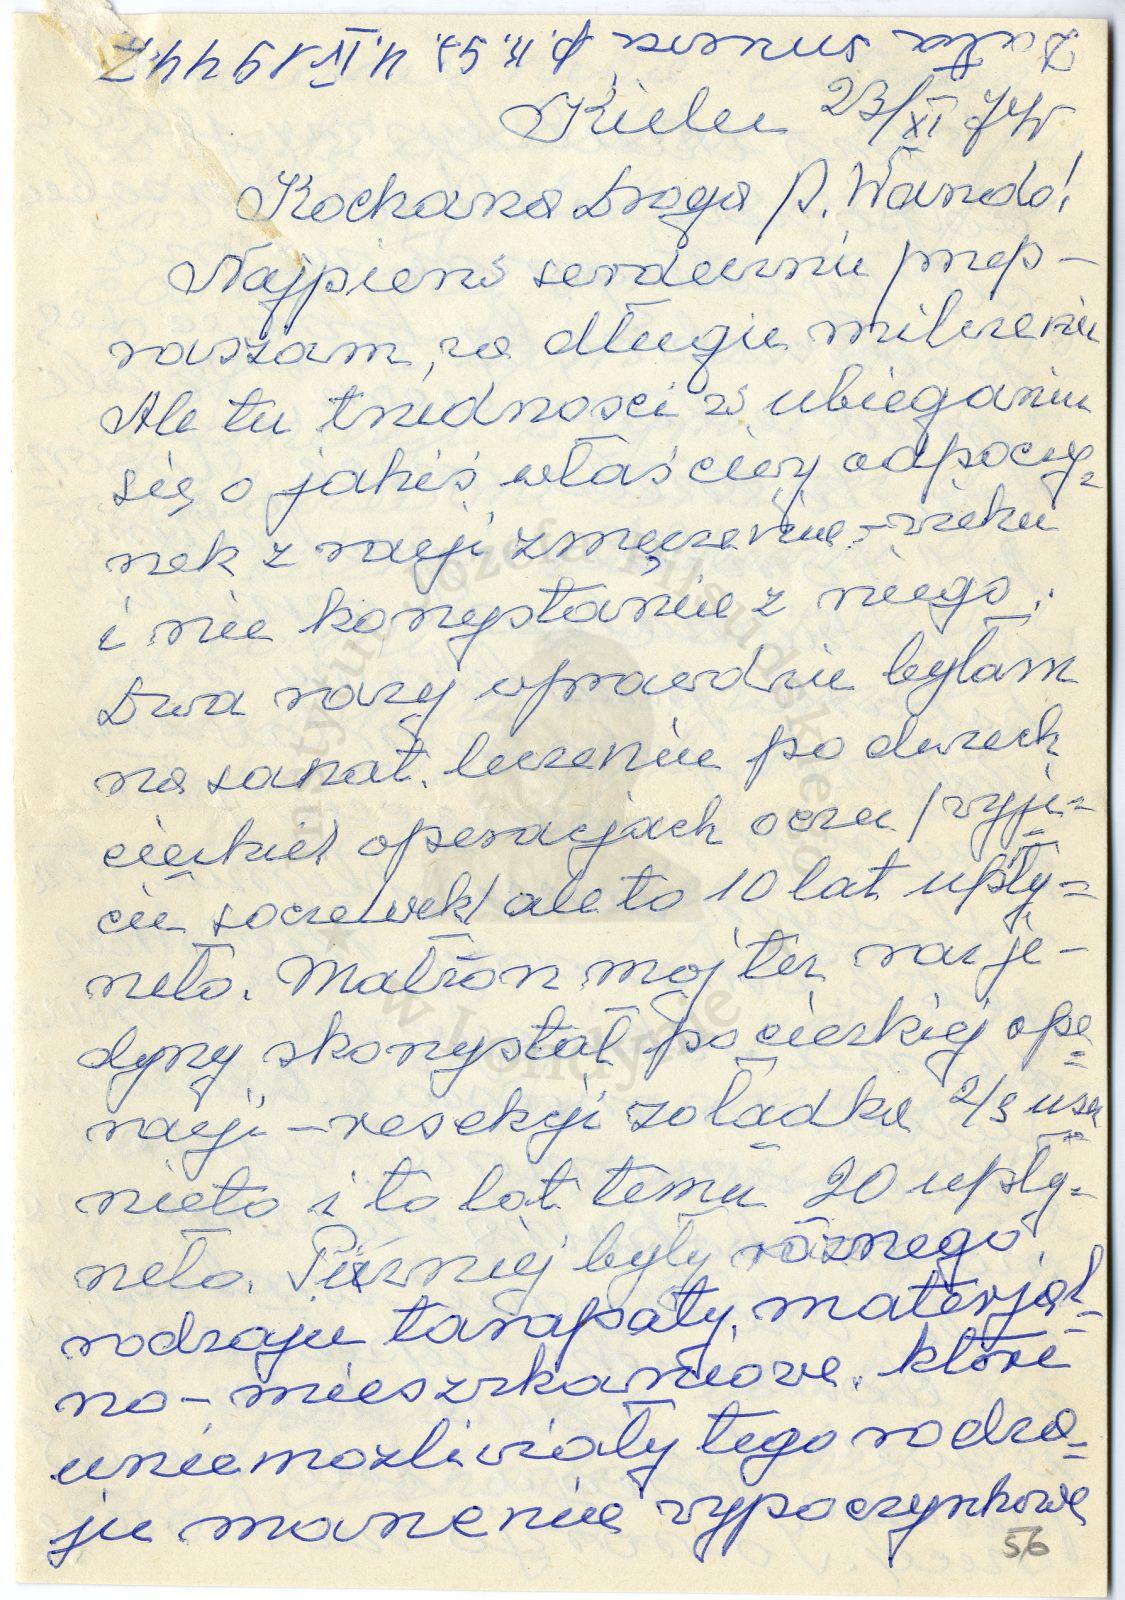 Data śmierci p. 4.IV.1944
Kielce 23/XI 74r.
Kochana Droga P. Wando!
Najpierw serdecznie przep-
raszam, za długie milczenie
Ale tu trudności w ubieganiu
się o jakiś właściwy odpoczy=
nek z racji zmęczenia - wieku
i nie korzystanie z niego.
Dwa razy wprawdzie byłam
na sanat. leczeniu po dwóch
ciężkich operacjach oczu /wyję=
cie soczewek/ ale to 10 lat upły=
nęło. Małżon mój też raz je-
dyny skorzystał po ciężkiej ope=
racji - resekcji żołądka 2/3 usu
nięto i to lat temu 20 upły=
nęło. Później były różnego
rodzaju tarapaty, materjal-
no - mieszkaniowe, które
uniemożliwiały tego rodza=
ju marzenie wypoczynkowe
56
Instytut Józefa Piłsudskiego
w Londynie